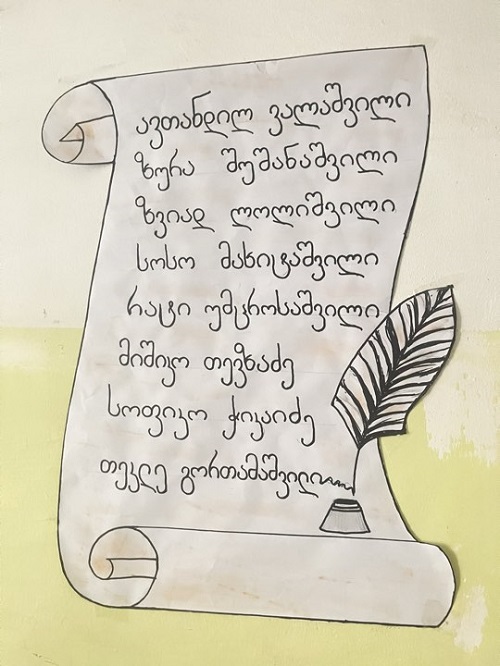 ავთანდილ ვალაშვილი
ზურა შუშანაშვილი
ზვიად ლოლიშვილი
სოსო მახიტაშვილი
რატი უმცროსაშვილი
მიშიკო თევზაძე
სოფიკო ჭიკაიძე
თეკლე გორთამაშვილი